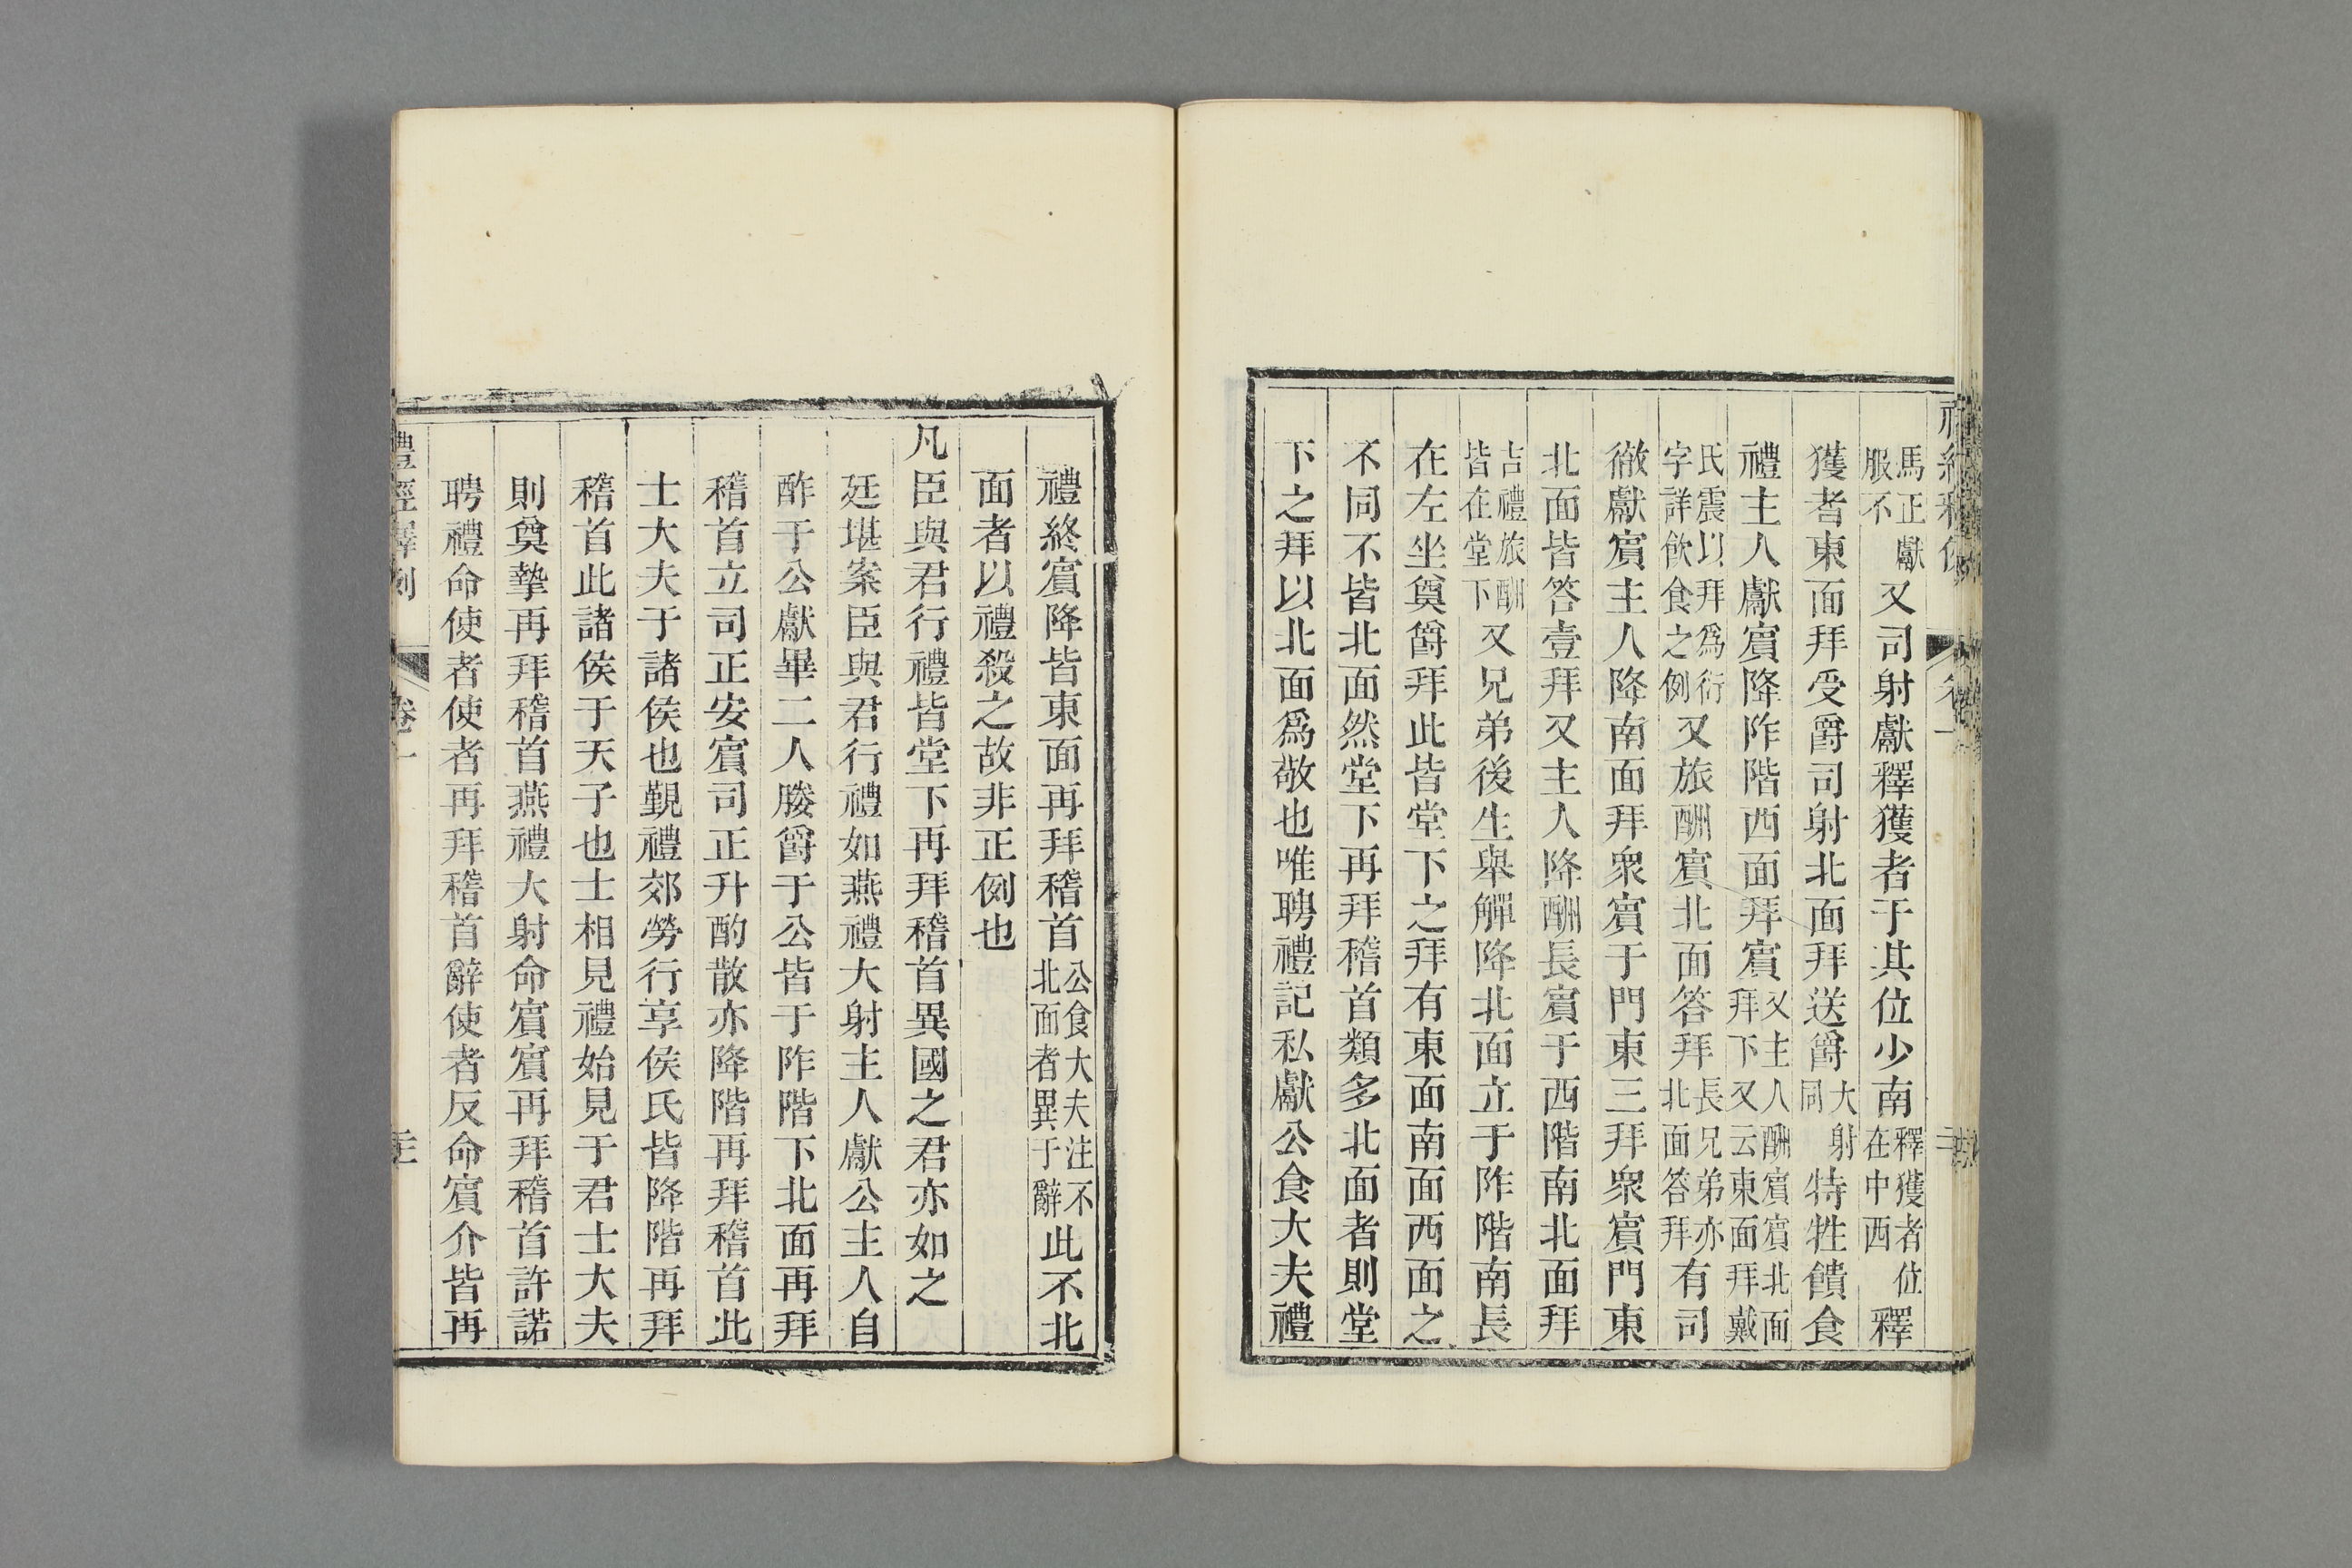 馬正獻服不又司射獻釋獲者于其位少南釋獲者位在中西釋
獲者東面拜受爵司射北面拜送爵大射同特牲饋食
禮主人獻賓降阼階西面拜賓又主人酬賓賓北面拜下又云東面拜戴
氏震以拜爲衍字詳飲食之例又旅酬賓北面答拜長兄弟亦北面答拜有司
徹獻賓主人降南面拜衆賓于門東三拜衆賓門東
北面皆答壹拜又主人降酬長賓于西階南北面拜
吉禮旅酬皆在堂下又兄弟後生舉觶降北面立于阼階南長
在左坐奠爵拜此皆堂下之拜有東面南面西面之
不同不皆北面然堂下再拜稽首類多北面者則堂
下之拜以北面爲敬也唯聘禮記私獻公食大夫禮
禮終賓降皆東面再拜稽首公食大夫注不北面者異于辭此不北
面者以禮殺之故非正例也
凡臣與君行禮皆堂下再拜稽首異國之君亦如之
廷堪案臣與君行禮如燕禮大射主人獻公主人自
酢于公獻畢二人媵爵于公皆于阼階下北面再拜
稽首立司正安賓司正升酌散亦降階再拜稽首此
士大夫于諸侯也覲禮郊勞行享侯氏皆降階再拜
稽首此諸侯于天子也士相見禮始見于君士大夫
則奠摯再拜稽首燕禮大射命賓賓再拜稽首許諾
聘禮命使者使者再拜稽首辭使者反命賓介皆再
禮經釋例 卷一